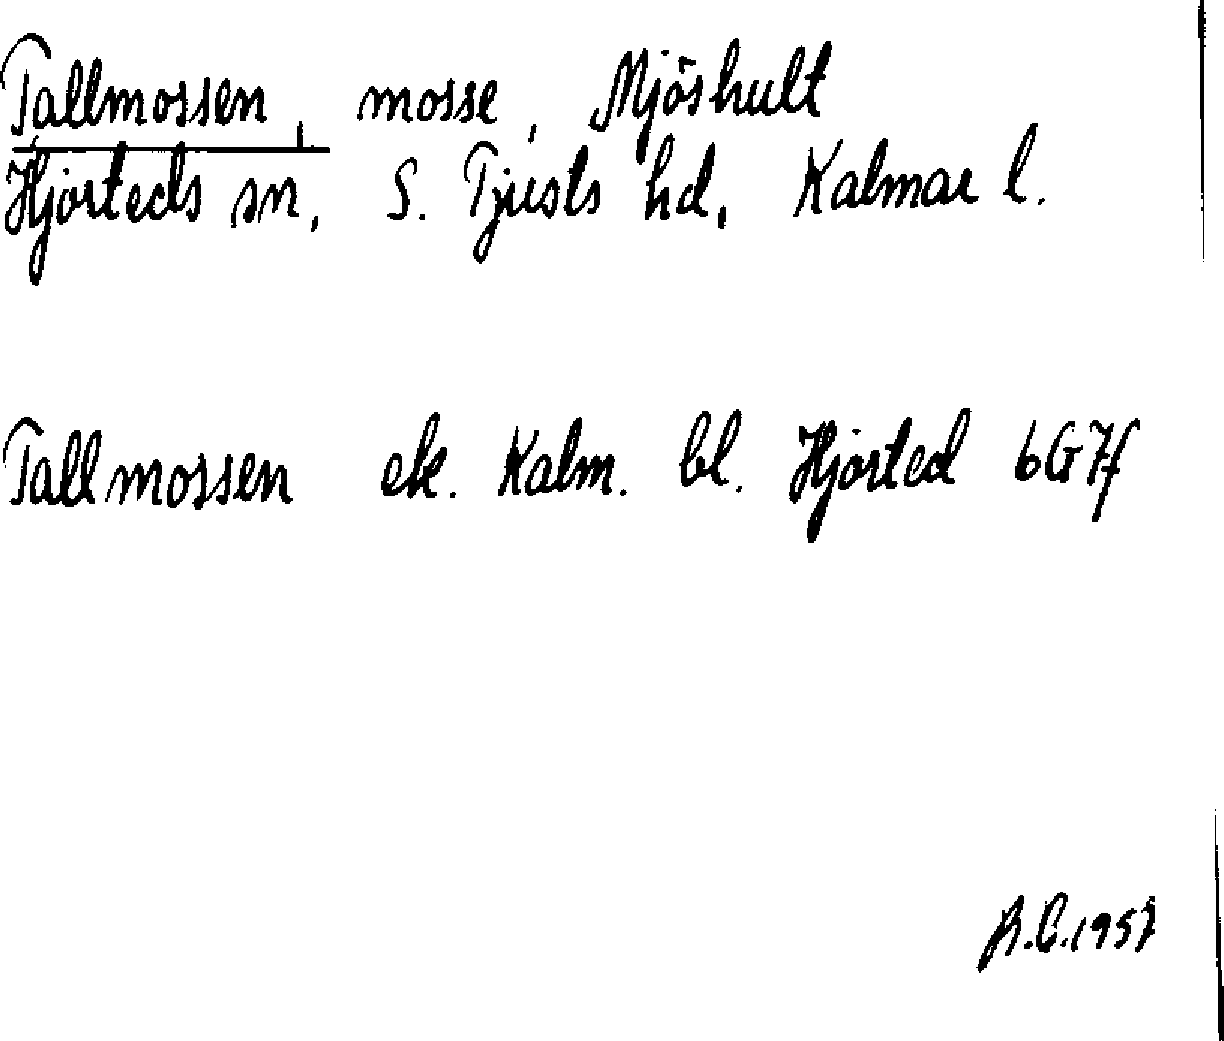 Tallmossen, mosse, Mjöshult
Hjorteds sn, S. Tjusts hd, Kalmar l.
Tallmossen ek. Kalm. bl. Hjorted 6G7f
B.C. 1957